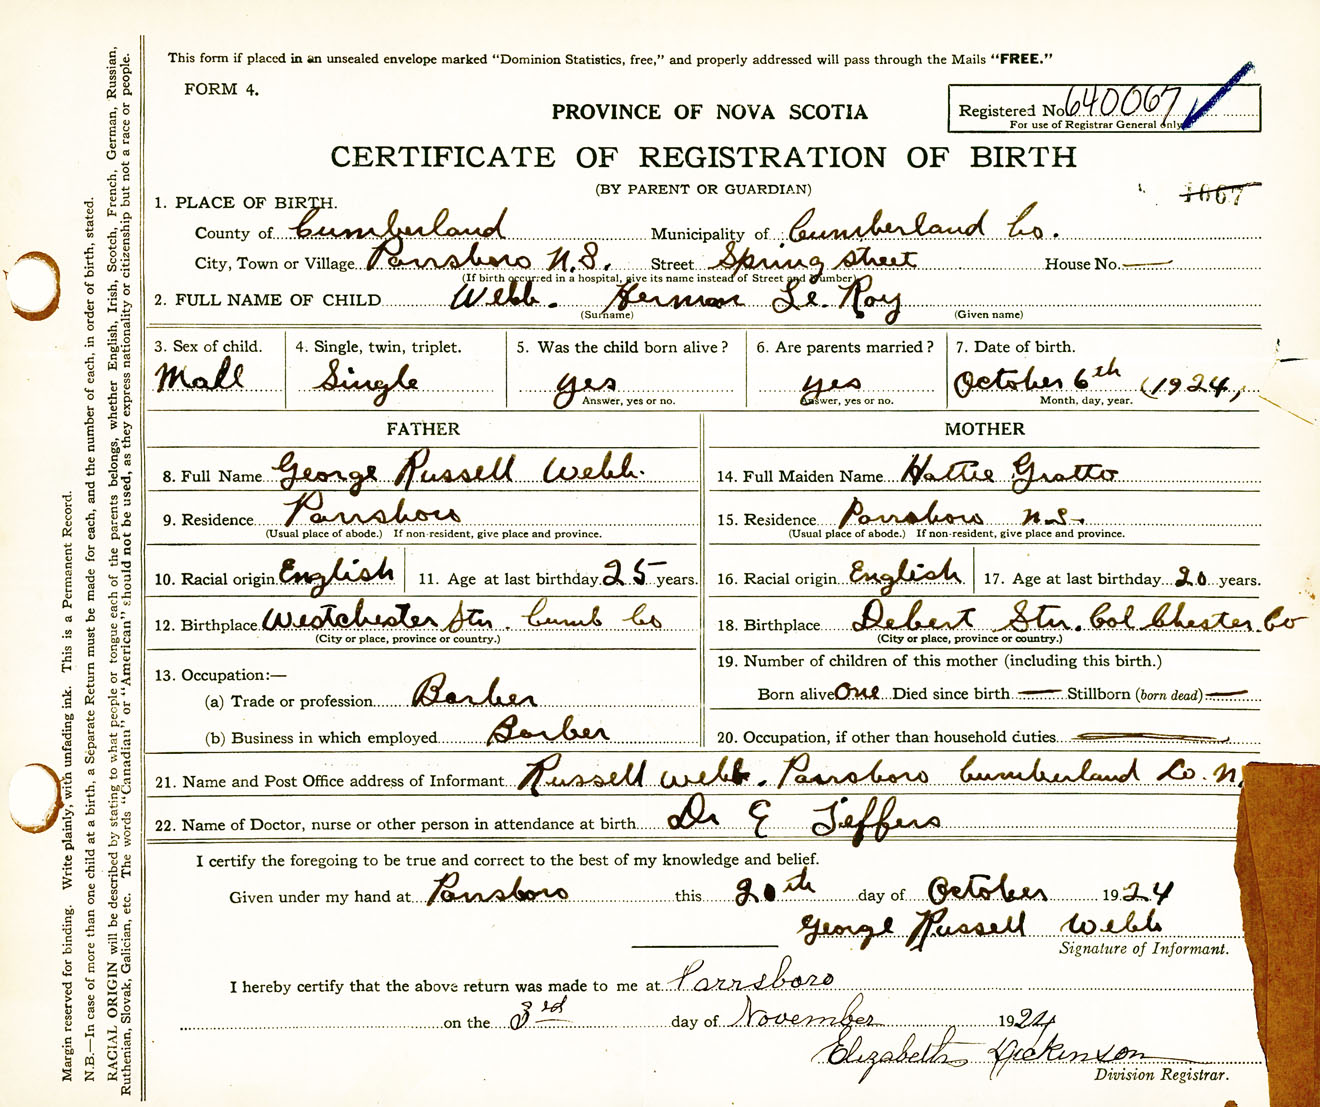 This form if placed in an unsealed envelope marked "Dominion Statistics, free," and properly addressed will pass through the Mails "FREE."
FORM 4.
PROVINCE OF NOVA SCOTIA
Registered No. 640067
For use of Registrar General only
CERTIFICATE OF REGISTRATION OF BIRTH
(BY PARENT OR GUARDIAN)
1667
1. PLACE OF BIRTH.
County of Cumberland Municipality of Cumberland Co.
City, Town or Village Parrsboro N.S. Street Spring street House No. —
(If birth occurred in a hospital, give its name instead of Street and Number)
2. FULL NAME OF CHILD Webb. Herman Le. Roy
(Surname) (Given name)
3. Sex of child. 4. Single, twin, triplet. 5. Was the child born alive? 6. Are parents married? 7. Date of birth.
Mall Single yes yes October 6th (1924,
Answer, yes or no. Answer, yes or no. Month, day, year.
FATHER MOTHER
8. Full Name George Russell Webb. 14. Full Maiden Name Hattie Gratto
9. Residence Parrsboro 15. Residence Parrsboro N.S.
(Usual place of abode.) If non-resident, give place and province. (Usual place of abode.) If non-resident, give place and province.
10. Racial origin English 11. Age at last birthday 25 years. 16. Racial origin English 17. Age at last birthday 20 years.
12. Birthplace Westchester Stn. Cumb Co 18. Birthplace Debert Stn. Col Chester. Co
(City or place, province or country.) (City or place, province or country.)
13. Occupation:— 19. Number of children of this mother (including this birth.)
(a) Trade or profession Barber Born alive One Died since birth — Stillborn (born dead) —
(b) Business in which employed Barber 20. Occupation, if other than household duties
21. Name and Post Office address of Informant Russell Webb. Parrsboro Cumberland Co. N.
22. Name of Doctor, nurse or other person in attendance at birth Dr E Jeffers
I certify the foregoing to be true and correct to the best of my knowledge and belief.
Given under my hand at Parrsboro this 20th day of October 1924
George Russell Webb
Signature of Informant.
I hereby certify that the above return was made to me at Parrsboro
on the 3rd day of November 1924
Elizabeth Dickinson
Division Registrar.
Margin reserved for binding. Write plainly, with unfading ink. This is a Permanent Record.
N.B.—In case of more than one child at a birth, a Separate Return must be made for each, and the number of each, in order of birth, stated.
RACIAL ORIGIN will be described by stating to what people or tongue each of the parents belongs, whether English, Irish, Scotch, French, German, Russian,
Ruthenian, Slovak, Galician, etc. The words "Canadian" or "American" should not be used, as they express nationality or citizenship but not a race or people.